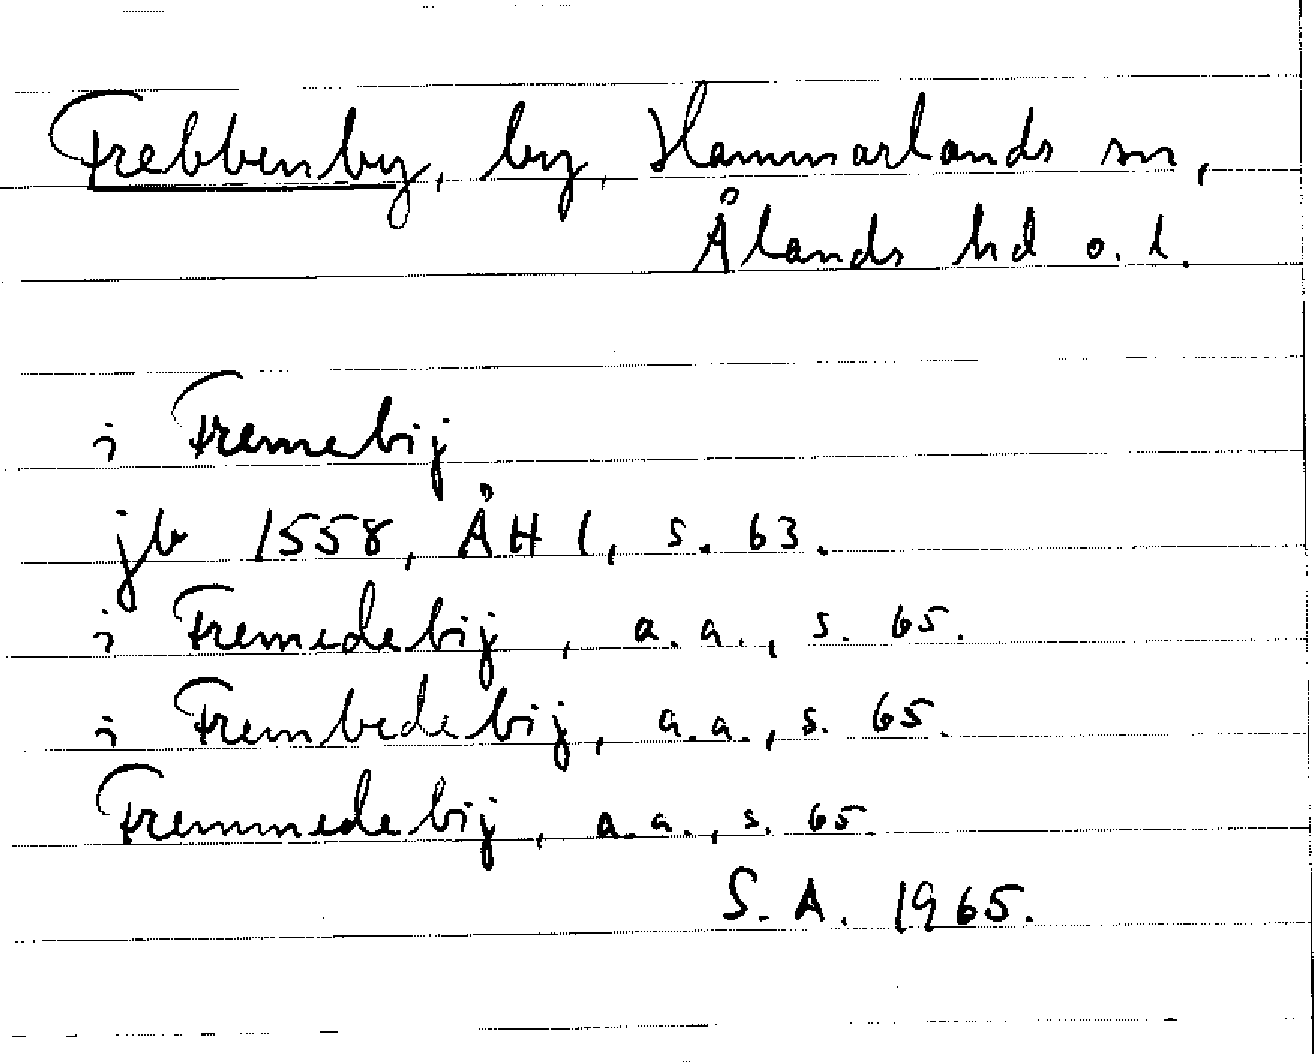 Frebbenby, by, Hammarlands sn,
Ålands hd o. l.
i Fremebij
jb 1558, ÅH 1, s. 63.
i Fremedebij, a.a., s. 65.
i Frembedebij, a.a., s. 65.
Fremmedebij, a.a., s. 65.
S.A. 1965.